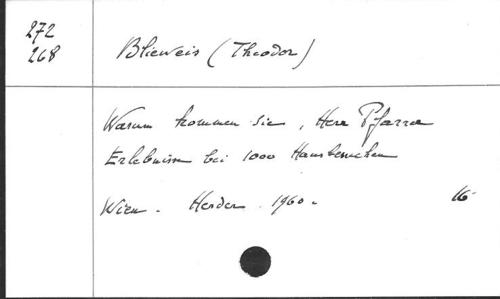 272
268
Blieweis (Theodor)
Warum kommen Sie, Herr Pfarrer
Erlebnisse bei 1000 Hausbesuchen
Wien - Herder. 1960.
16